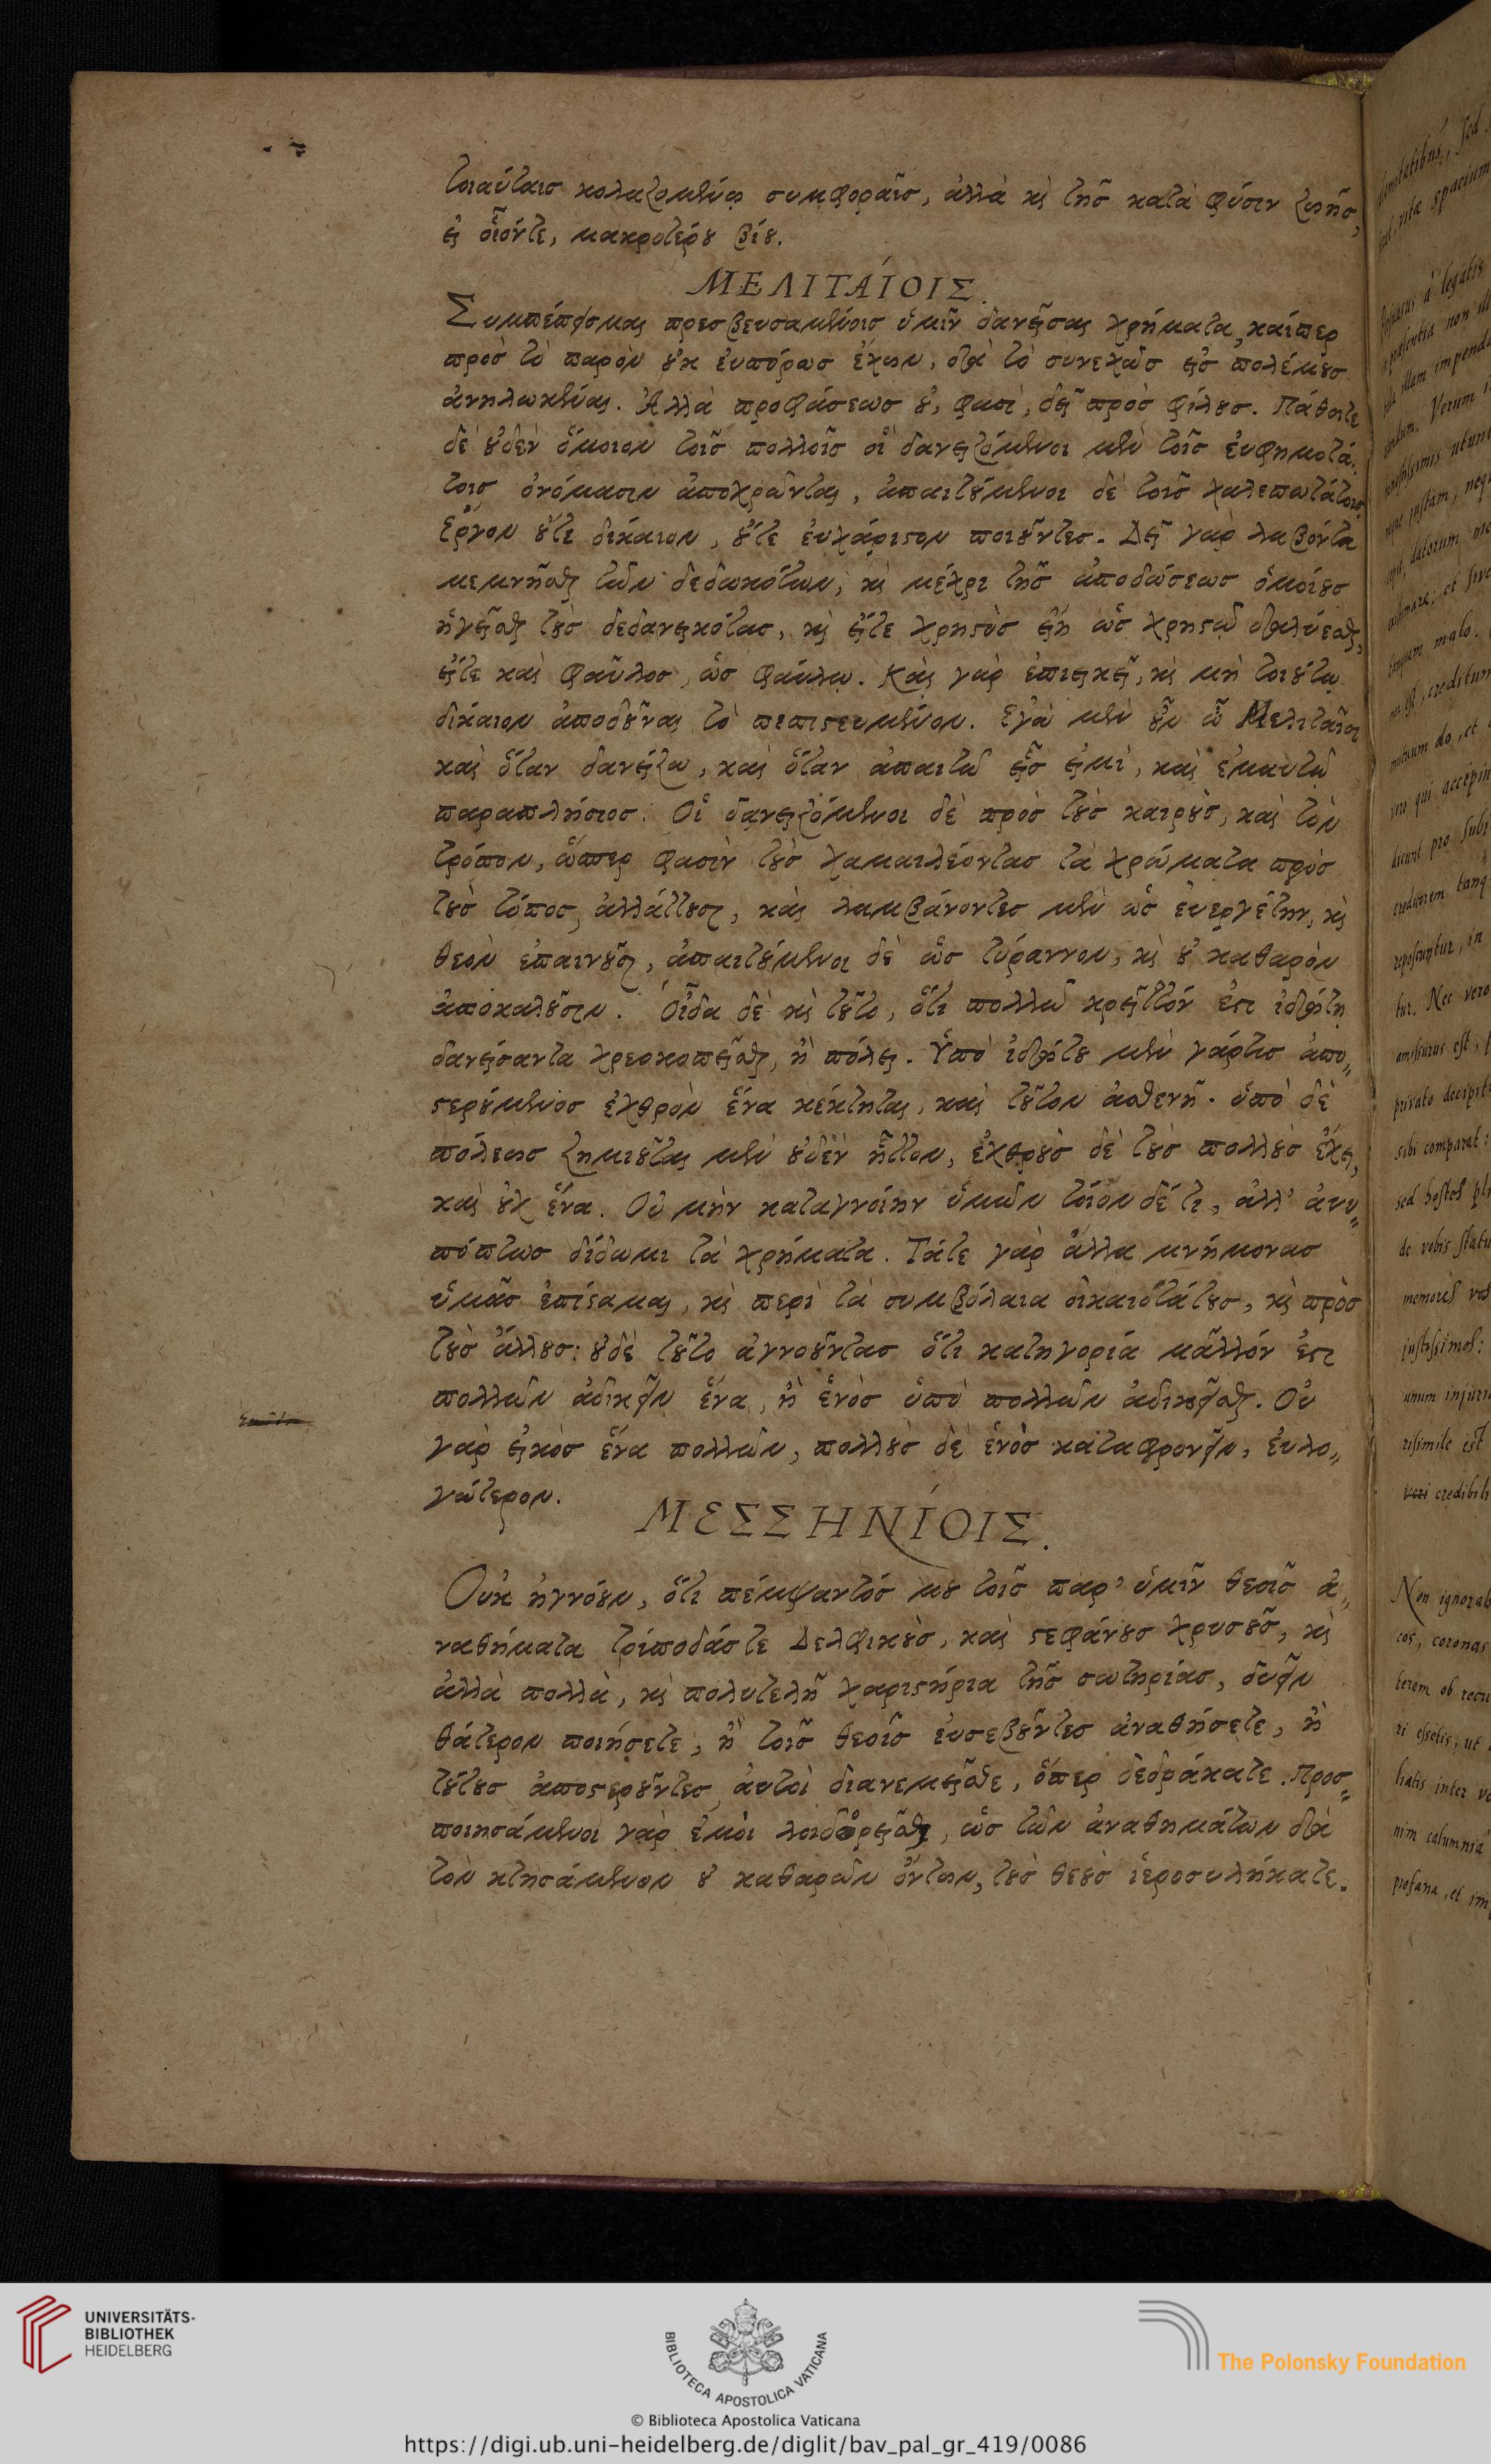 τοιαύταισ κολαζομένῳ συμφοραῖσ, ἀλλὰ κὶ τῆσ κατὰ φύσιν ζωῆσ,
εἰ οἷόντε, μακροτέρου βίου.
ΜΕΛΙΤΑΊΟΙΣ.
Συμπέπφομαι πρεσβευσαμένοισ ὑμῖν δανεῖσαι χρήματα, καίπερ
πρὸσ τὸ παρὸν οὐκ ἐυπόρωσ ἔχων, διὰ τὸ συνεχῶσ εἰσ πολέμουσ
ἀνηλωκέναι. Ἀλλὰ προφάσεωσ οὐ, φασὶ, δεῖ πρὸσ φίλουσ. Πάθοιτε
δὲ οὐδὲν ὅμοιον τοῖσ πολλοῖσ οἳ δανειζόμενοι μὲν τοῖσ ἐυφημοτά-
τοισ ὀνόμασιν ἀποχρῶνται, ἀπαιτούμενοι δὲ τοῖσ χαλεπωτάτοισ,
ἔργον οὔτε δίκαιον, οὔτε ἐυχάριστον ποιοῦντεσ. Δεῖ γὰρ λαβόντα
μεμνῆσθαι τῶν δεδωκότων, κὶ μέχρι τῆσ ἀποδώσεωσ ὁμοίουσ
ἡγεῖσθαι τοὺσ δεδανεικότασ, κὶ εἴτε χρηστὸσ εἴη ὡσ χρηστῷ διαλύεσθαι,
εἴτε καὶ φαῦλοσ, ὡσ φαύλῳ. Καὶ γὰρ ἐπιεικεῖ, κὶ μὴ τοιούτῳ
δίκαιον ἀποδοῦναι τὸ πεπιστευμένον. Ἐγὼ μὲν οὖν ὦ Μελιταῖοι
καὶ ὅταν δανείζω, καὶ ὅταν ἀπαιτῶ εἷσ εἰμὶ, καὶ ἐμαυτῷ
παραπλήσιοσ. Οἱ δανειζόμενοι δὲ πρὸσ τοὺσ καιροὺσ, καὶ τὸν
τρόπον, ὥσπερ φασὶν τοὺσ χαμαιλέοντασ τὰ χρώματα πρὸσ
τοὺσ τόπουσ, ἀλλάττουσι, καὶ λαμβάνοντεσ μὲν ὡσ ἐυεργέτην, κὶ
θεὸν ἐπαινοῦσι, ἀπαιτούμενοι δὲ ὡσ τύραννον, κὶ οὐ καθαρὸν
ἀποκαλοῦσιν. Οἶδα δὲ κὶ τοῦτο, ὅτι πολλῷ κρεῖττόν ἐστι ἰδιώτῃ
δανείσαντα χρεοκοπεῖσθαι, ἢ πόλει. Ὑπὸ ἰδιώτου μὲν γάρτισ ἀπο-
στερούμενοσ ἐχθρὸν ἕνα κέκτηται, καὶ τοῦτον ἀσθενῆ. ὑπὸ δὲ
πόλεωσ ζημιοῦται μὲν οὐδὲν ἧττον, ἐχθροὺσ δὲ τοὺσ πολλοὺσ ἔχει,
καὶ οὐχ ἕνα. Οὐ μὴν καταγνοίην ὑμῶν τοιόν δέ τι, ἀλλ' ἀνυ-
πόπτωσ δίδωμι τὰ χρήματα. Τάτε γὰρ ἄλλα μνήμονασ
ὑμᾶσ ἐπίσταμαι, κὶ περὶ τὰ συμβόλαια δικαιοτάτουσ, κὶ πρὸσ
τοὺσ ἄλλουσ: οὐδὲ τοῦτο ἀγνοοῦντασ ὅτι κατηγορία μᾶλλόν ἐστι
πολλῶν ἀδικεῖν ἕνα, ἢ ἑνὸσ ὑπὸ πολλῶν ἀδικεῖσθαι. Οὐ
γὰρ εἰκὸσ ἕνα πολλῶν, πολλοὺσ δὲ ἑνὸσ καταφρονεῖν, ἐυλο-
γώτερον.
ΜΕΣΣΗΝΊΟΙΣ.
Οὐκ ἠγνόουν, ὅτι πέμψαντόσ μου τοῖσ παρ' ὑμῖν θεοῖσ ἀ-
ναθήματα τρίποδάσ τε Δελφικοὺσ, καὶ στεφάνουσ χρυσοῦσ, κὶ
ἀλλὰ πολλὰ, κὶ πολυτελῆ χαριστήρια τῆσ σωτηρίασ, δυεῖν
θάτερον ποιήσετε, ἢ τοῖσ θεοῖσ ἐυσεβοῦντεσ ἀναθήσετε, ἢ
τούτουσ ἀποστεροῦντεσ ἀυτοὶ διανεμεῖσθε, ὅπερ δεδράκατε. Προσ-
ποιησάμενοι γὰρ ἐμοὶ λοιδορεῖσθαι, ὡσ τῶν ἀναθημάτων διὰ
τὸν κτησάμενον οὐ καθαρῶν ὄντων, τοὺσ θεοὺσ ἱεροσυλήκατε.
Non ignorab
UNIVERSITÄTS-
BIBLIOTHEK
HEIDELBERG
BIBLIOTECA APOSTOLICA VATICANA
The Polonsky Foundation
© Biblioteca Apostolica Vaticana
https://digi.ub.uni-heidelberg.de/diglit/bav_pal_gr_419/0086